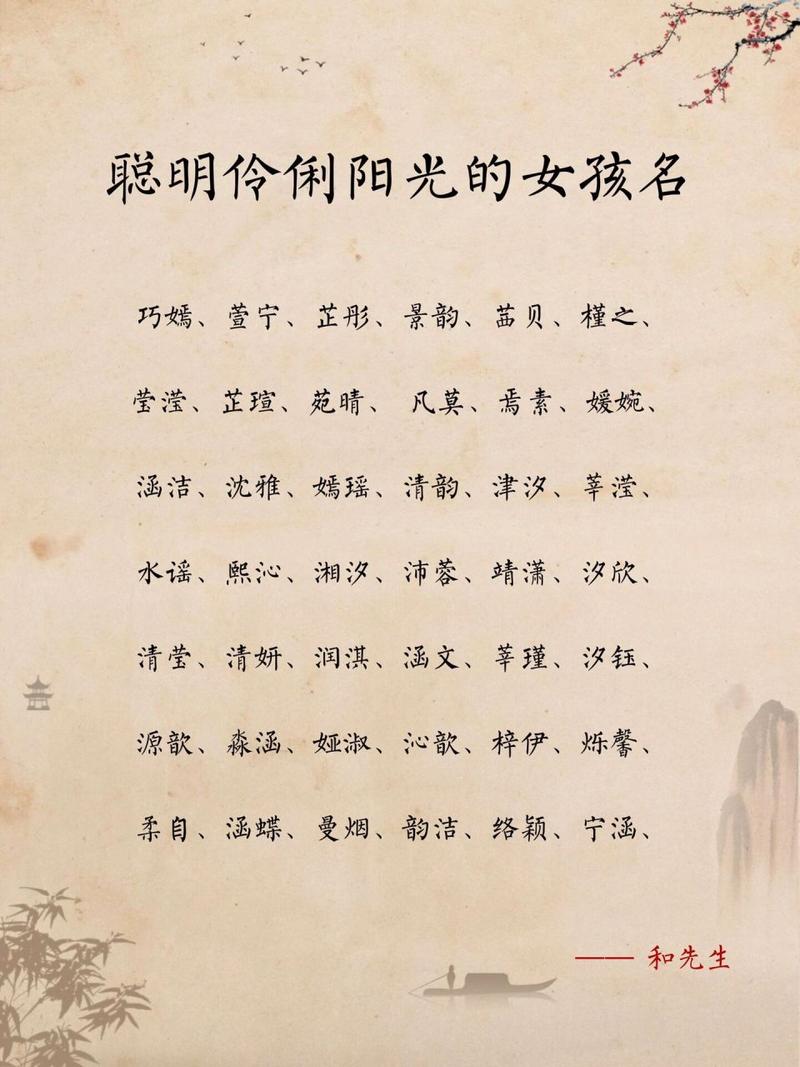 聪明伶俐阳光的女孩名
巧嫣、萱宁、芷彤、景韵、茜贝、槿之、
莹滢、芷瑄、苑晴、凡莫、焉素、媛婉、
涵洁、沈雅、嫣瑶、清韵、津汐、莘滢、
水谣、熙沁、湘汐、沛蓉、靖潇、汐欣、
清莹、清妍、润淇、涵文、莘瑾、汐钰、
源歆、淼涵、娅淑、沁歆、梓伊、烁馨、
柔自、涵蝶、曼烟、韵洁、络颖、宁涵、
—— 和先生